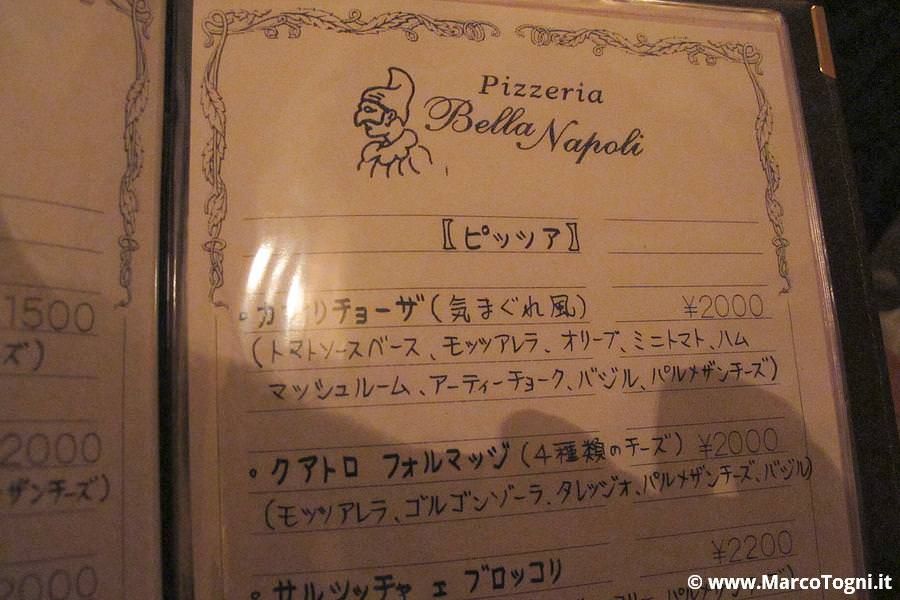 Pizzeria
Bella Napoli
〖ピッツァ〗
1500
ズ)
2000
ザンチーズ)
2000
・カプリチョーザ(気まぐれ風) ¥2000
(トマトソースベース、モッツアレラ、オリーブ、ミニトマト、ハム
マッシュルーム、アーティーチョーク、バジル、パルメザンチーズ)
・クアトロ フォルマッジ(4種類のチーズ) ¥2000
(モッツアレラ、ゴルゴンゾーラ、タレッジオ、パルメザンチーズ、バジル)
¥2200
・サルシッチャ エ ブロッコリ
© www.MarcoTogni.it